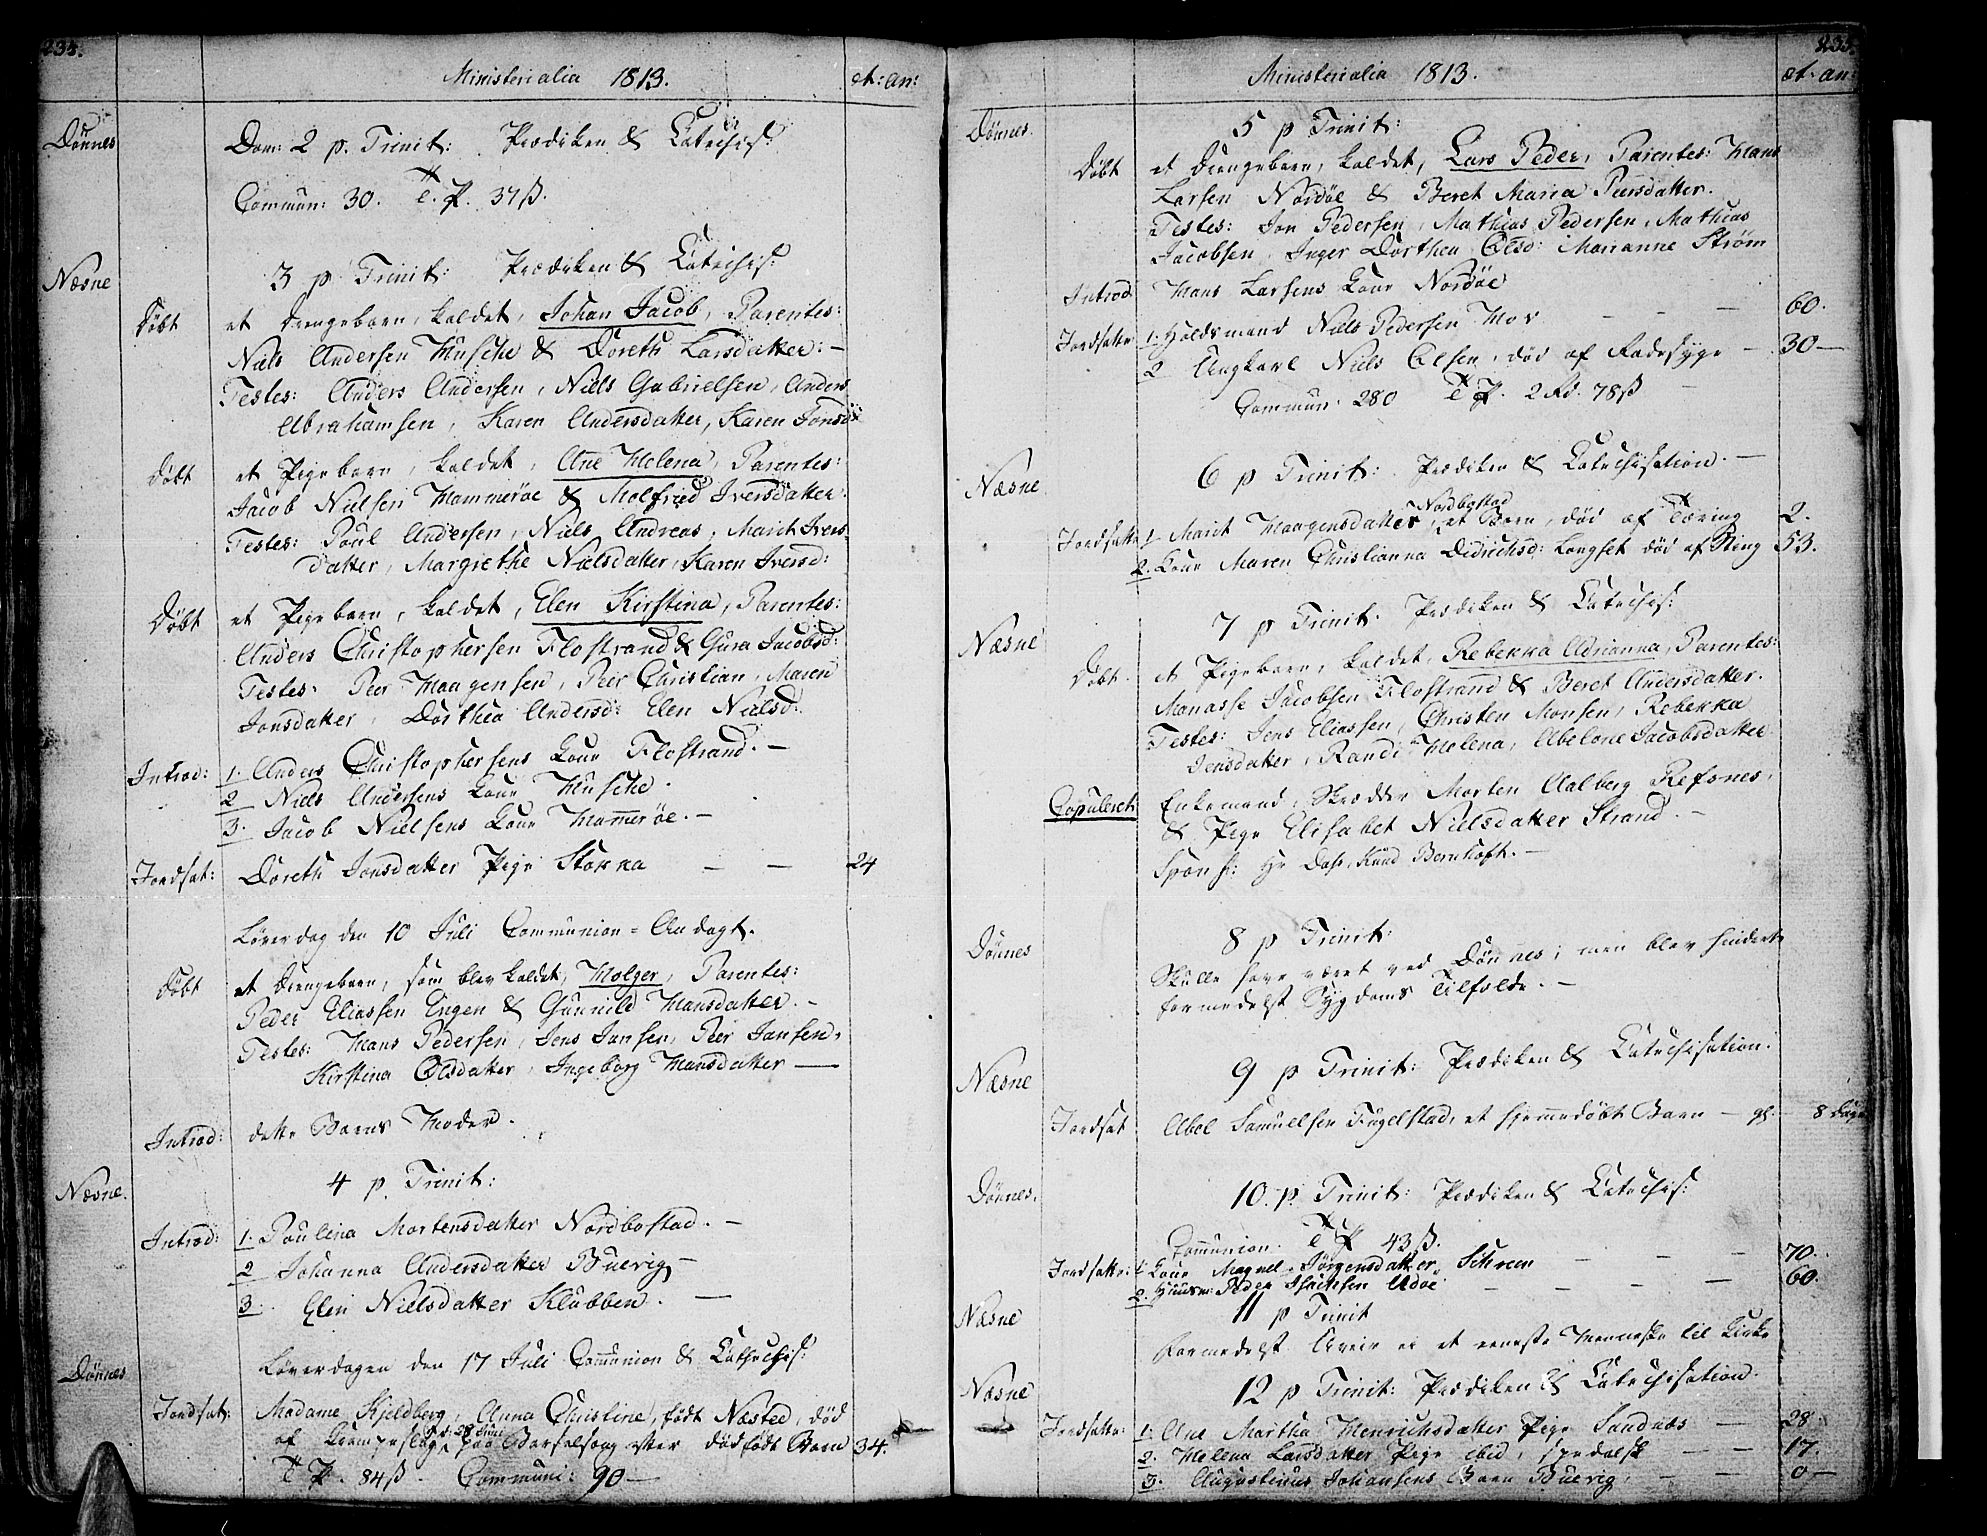 234.
Ministerialia 1813. æt: an:
Dønnes Dom: 2 p. Trinit: Prædiken & Catechis:
Commun: 30. T. P. 37 ß.
Næsne 3 p. Trinit: Prædiken & Catechis:
Døbt et Drengebarn, kaldet, Johan Jacob, Parentes:
Niels Andersen Husche & Doreth Larsdatter: —
Testes: Anders Andersen, Niels Gabrielsen, Anders
Abrahamsen, Karen Andersdatter, Karen Jonsd:
Døbt et Pigebarn, kaldet, Ane Helena, Parentes:
Jacob Nielsen Hammerøe & Holfried Iversdatter:
Testes: Poul Andersen, Niels Andreas, Marit Ivers
datter, Margrethe Nielsdatter, Karen Iversd:
Døbt et Pigebarn, kaldet, Elen Kirstina, Parentes:
Anders Christophersen Flostrand & Gura Jacobsd:
Testes: Peer Haagensen, Peir Christian, Maren
Jonsdatter, Dorthea Andersd: Elen Nielsd:
Introd: 1. Anders Christophersens Kone Flostrand. —
2 Niels Andersens Kone Husche.
3. Jacob Nielsens Kone Hammerøe. —
Jordsat: Doreth Jonsdatter Pige Stokka — — 24
Løverdag den 10 Juli Communion = Andagt.
Døbt et Drengebarn, som blev kaldet, Holger, Parentes:
Peder Eliassen Engen & Gunnild Hansdatter. —
Testes: Hans Pedersen, Jens Jansen, Peer Jansen,
Kirstina Olsdatter, Ingeborg Hansdatter —
Introd: dette Barns Moder.
Næsne. 4 p. Trinit:
Introd: 1. Paulina Mortensdatter Nordbostad. —
2 Johanna Andersdatter Buevig —
3. Elen Nielsdatter Klubben. —
Dønnes Løverdagen den 17 Juli Communion & Cathechis:
Jordsat: Madame Kjeldberg, Anna Christine, født Næsted, død
d: 28 Juni
af Krampeslag, paa Barselseng efter dødfødt Barn 34.
T P. 84 ß. Communi: 90 —
235.
Ministerialia 1813. æt: an:
Dønnes. 5 p Trinit:
Døbt et Drengebarn, kaldet, Lars Peder, Parentes: Hans
Larsen Nordøe & Beret Maria Peersdatter.
Testes: Jon Pedersen, Mathias Pedersen, Mathias
Jacobsen, Inger Dorthea Olsd: Marianne Strøm
Introd Hans Larsens Kone Nordøe
Jordsatte 1. Holdsmand Niels Pedersen Mov — — — 60.
2 Ungkarl Niels Olsen, død af Radesyge — 30 —
Commun: 280 T P. 2 Rd. 78 ß —
Næsne 6 p Trinit: Prædiken & Catechisation. —
Nordbostad
Jordsatte 1 Marit Haagensdatter, et Barn, død af Tæring 2.
2. Kone Maren Christianna Didrichsd: Langset død af Sting 53.
Næsne 7 p Trinit. Prædiken & Catechis:
Døbt. et Pigebarn, kaldet, Rebekka Adrianna, Parentes:
Manasse Jacobsen Flostrand & Beret Andersdatter.
Testes: Jens Eliassen, Christen Monsen, Rebekka
Jensdatter, Randi Helena, Abelone Jacobsdatter
Copuleret: Enkemand, Skrædder Morten Aalberg Refsnes,
& Pige Elisabet Nielsdatter Strand. —
Spons: Hr Dass, Knud Bernhoft. —
Dønnes 8 p Trinit:
Skulle have været ved Dønnes; men blev hindert
formedelst Sygdoms Tilfelde. —
Næsne 9 p Trinit: Prædiken & Catechisation.
Jordsat Abel Samuelsen Fugelstad, et hjemmedøbt Barn — 8 Dage
Dønnes. 10. p. Trinit: Prædiken & Catechis:
Communion. T P 43 ß.
Jordsatte: 1. Kone Magnel Jørgensdatter Schrem — — — 70.
2. Huusm: Peder Isachsen Udøe — — — 60.
Næsne 11 p Trinit
formedelst Uveir ei et eeneste Menneske til Kirke
Næsne 12 p Trinit: Prædiken & Catechisation.
Jordsatte: 1. Ane Martha Henrichsdatter Pige Sandnæs — 28.
2. Helena Larsdatter Pige ibid, spedalsk — — 17.
3. Augustinus Johansens Barn Buevig, — — 0 —